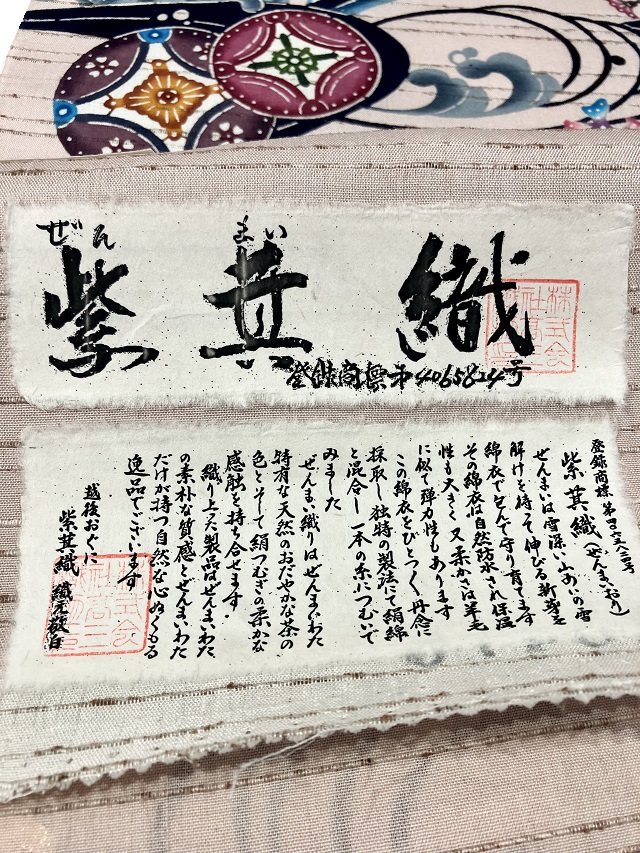 ぜんまい
紫萁織
登録商標第4065824号
登録商標 第四〇六五八二四号
紫萁織(ぜんまいおり)
ぜんまいは雪深い山あいの雪
解けを待って伸びる新芽を
綿衣で包んで守り育てます
その綿衣は自然防水され保温
性も大きく又柔かさは羊毛
に似て弾力性もあります
この綿衣をひとつ〱丹念に
採取し独特の製法にて絹綿
と混合し一本の糸につむいで
みました
ぜんまい織りはぜんまいわた
特有な天然のおだやかな茶の
色とそして絹つむぎの柔かな
感触を持ち合せます・
織り上った製品はぜんまいわた
の素朴な質感とぜんまいわた
だけが持つ自然な心ぬくもる
逸品でございます
越後おぐに
紫萁織 織元敬白
株式会社